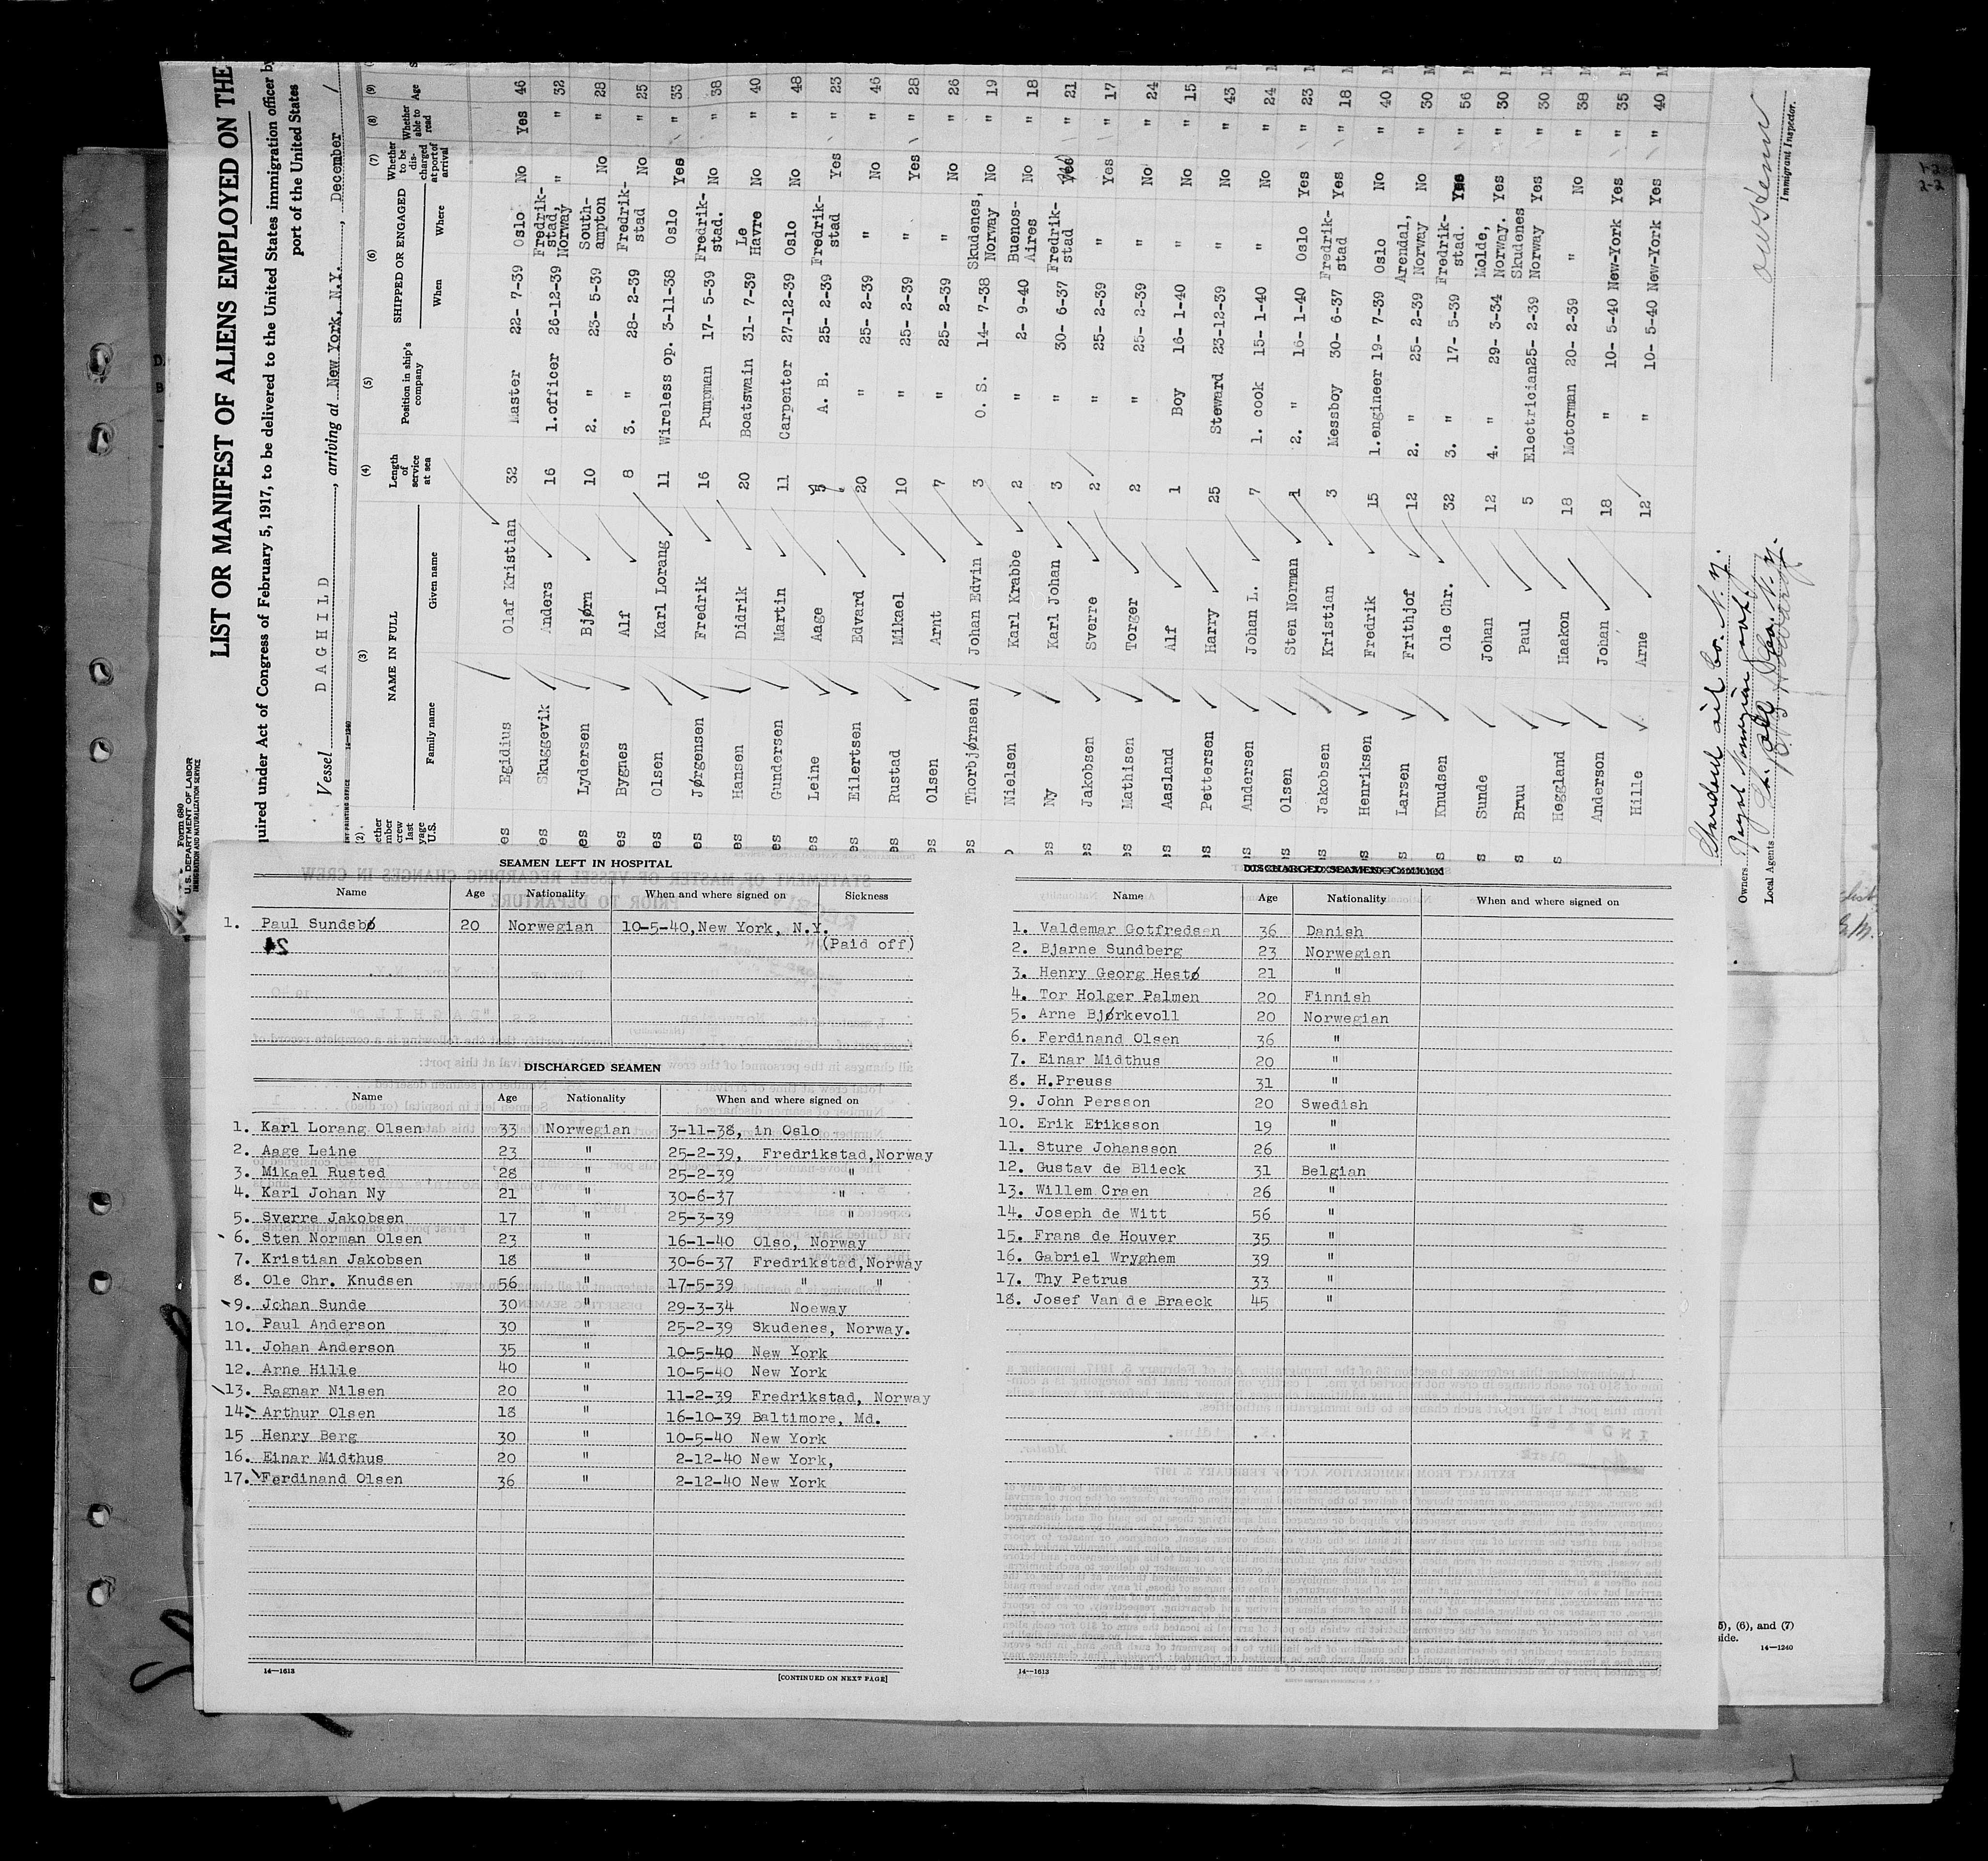 Form 680
U. S. DEPARTMENT OF LABOR
IMMIGRATION AND NATURALIZATION SERVICE
LIST OR MANIFEST OF ALIENS EMPLOYED ON THE
quired under Act of Congress of February 5, 1917, to be delivered to the United States immigration officer by
port of the United States
Vessel DAGHILD, arriving at New York, N.Y., December
14—1240
(2) (3) (4) (5) (6) (7) (8) (9)
ether mber crew last yage U.S.
NAME IN FULL
Family name Given name
Length of service at sea
Position in ship's company
SHIPPED OR ENGAGED
When Where
Whether to be discharged at port of arrival
Whether able to read
Age
es Egidius Olaf Kristian 32 Master 22- 7-39 Oslo No Yes 46
es Skuggevik Anders 16 1.officer 26-12-39 Fredrik-stad, Norway " " 32
es Lydersen Bjørn 10 2. " 23- 5-39 South-ampton No " 28
es Bygnes Alf 8 3. " 28- 2-39 Fredrik-stad No " 25
es Olsen Karl Lorang 11 Wireless op. 3-11-38 Oslo Yes " 33
es Jørgensen Fredrik 16 Pumpman 17- 5-39 Fredrik-stad. No " 38
es Hansen Didrik 20 Boatswain 31- 7-39 Le Havre No " 40
es Gundersen Martin 11 Carpenter 27-12-39 Oslo No " 48
es Leine Aage A. B. 25- 2-39 Fredrik-stad Yes " 23
es Eilertsen Edvard 20 " 25- 2-39 " No " 46
es Rustad Mikael 10 " 25- 2-39 " Yes " 28
es Olsen Arnt 7 " 25- 2-39 " No " 26
es Thorbjørnsen Johan Edvin 3 O. S. 14- 7-38 Skudenes, Norway No " 19
Nielsen Karl Krabbe 2 " 2- 9-40 Buenos-Aires No " 18
es Ny Karl Johan 3 " 30- 6-37 Fredrik-stad Yes " 21
es Jakobsen Sverre 2 " 25- 2-39 " Yes " 17
es Mathisen Torger 2 " 25- 2-39 " No " 24
es Aasland Alf 1 Boy 16- 1-40 " No " 15
es Pettersen Harry 25 Steward 23-12-39 " No " 43
es Andersen Johan L. 7 1. cook 15- 1-40 " No " 24
es Olsen Sten Norman 1 2. " 16- 1-40 Oslo Yes " 23
s Jakobsen Kristian 3 Messboy 30- 6-37 Fredrik-stad Yes " 18
s Henriksen Fredrik 15 1.engineer 19- 7-39 Oslo No " 40
s Larsen Frithjof 12 2. " 25- 2-39 Arendal, Norway No " 30
s Knudsen Ole Chr. 32 3. " 17- 5-39 Fredrik-stad. Yes " 56
s Sunde Johan 12 4. " 29- 3-34 Molde, Norway. Yes " 30
s Bruu Paul 5 Electrician 25- 2-39 Skudenes Norway Yes " 30
s Heggland Haakon 18 Motorman 20- 2-39 " No " 38
Anderson Johan 18 " 10- 5-40 New-York Yes " 35
Hille Arne 12 " 10- 5-40 New-York Yes " 40
Standard oil Co. N.Y.
Owners
Local Agents
Immigrant Inspector.
1-2
2-2
SEAMEN LEFT IN HOSPITAL
Name Age Nationality When and where signed on Sickness
1. Paul Sundsbø 20 Norwegian 10-5-40, New York, N.Y.
(Paid off)
DISCHARGED SEAMEN
Name Age Nationality When and where signed on
1. Karl Lorang Olsen 33 Norwegian 3-11-38, in Oslo
2. Aage Leine 23 " 25-2-39, Fredrikstad,Norway
3. Mikael Rusted 28 " 25-2-39 "
4. Karl Johan Ny 21 " 30-6-37 "
5. Sverre Jakobsen 17 " 25-3-39 "
6. Sten Norman Olsen 23 " 16-1-40 Olso, Norway
7. Kristian Jakobsen 18 " 30-6-37 Fredrikstad,Norway
8. Ole Chr. Knudsen 56 " 17-5-39 " "
9. Johan Sunde 30 " 29-3-34 Noeway
10. Paul Anderson 30 " 25-2-39 Skudenes, Norway.
11. Johan Anderson 35 " 10-5-40 New York
12. Arne Hille 40 " 10-5-40 New York
13. Ragnar Nilsen 20 " 11-2-39 Fredrikstad, Norway
14. Arthur Olsen 18 " 16-10-39 Baltimore, Md.
15 Henry Berg 30 " 10-5-40 New York
16. Einar Midthus 20 " 2-12-40 New York,
17. Ferdinand Olsen 36 " 2-12-40 New York
14—1613
[CONTINUED ON NEXT PAGE]
DISCHARGED SEAMEN—Continued
Name Age Nationality When and where signed on
1. Valdemar Gotfredsen 36 Danish
2. Bjarne Sundberg 23 Norwegian
3. Henry Georg Hestø 21 "
4. Tor Holger Palmen 20 Finnish
5. Arne Bjørkevoll 20 Norwegian
6. Ferdinand Olsen 36 "
7. Einar Midthus 20 "
8. H.Preuss 31 "
9. John Persson 20 Swedish
10. Erik Eriksson 19 "
11. Sture Johansson 26 "
12. Gustav de Blieck 31 Belgian
13. Willem Craen 26 "
14. Joseph de Witt 56 "
15. Frans de Houver 35 "
16. Gabriel Wryghem 39 "
17. Thy Petrus 33 "
18. Josef Van de Braeck 45 "
14—1613
5), (6), and (7)
ide.
14—1240